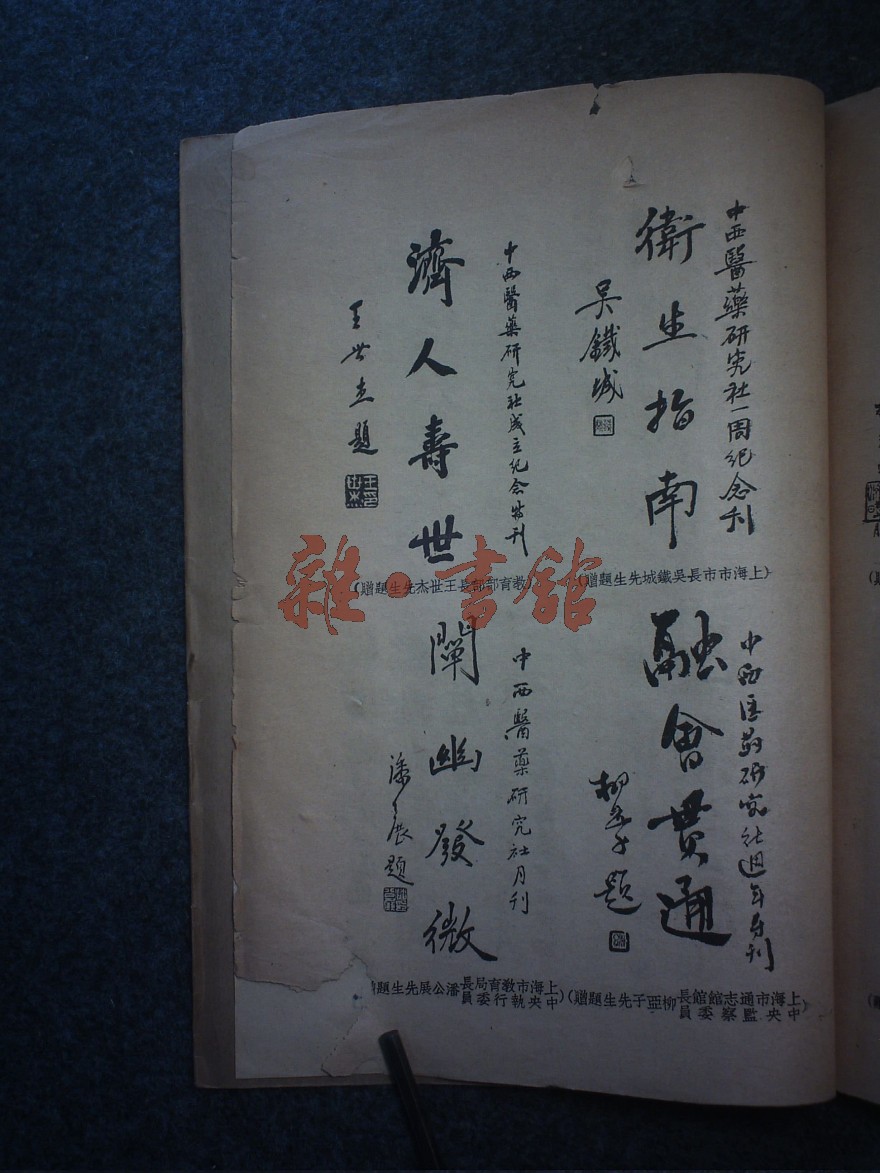 中西醫藥研究社一周紀念刊
衛生指南
吳鐵城
(上海市市長吳鐵城先生題贈)
中西醫藥研究社成立紀念特刊
濟人壽世
王世杰題
王世杰印
(教育部部長王世杰先生題贈)
中西医药研究社週年專刊
融會貫通
柳亞子題
(上海市通志館館長
中央監察委員
柳亞子先生題贈)
中西醫藥研究社月刊
闡幽發微
潘公展題
(上海市教育局長
中央執行委員
潘公展先生題贈
雜·書館